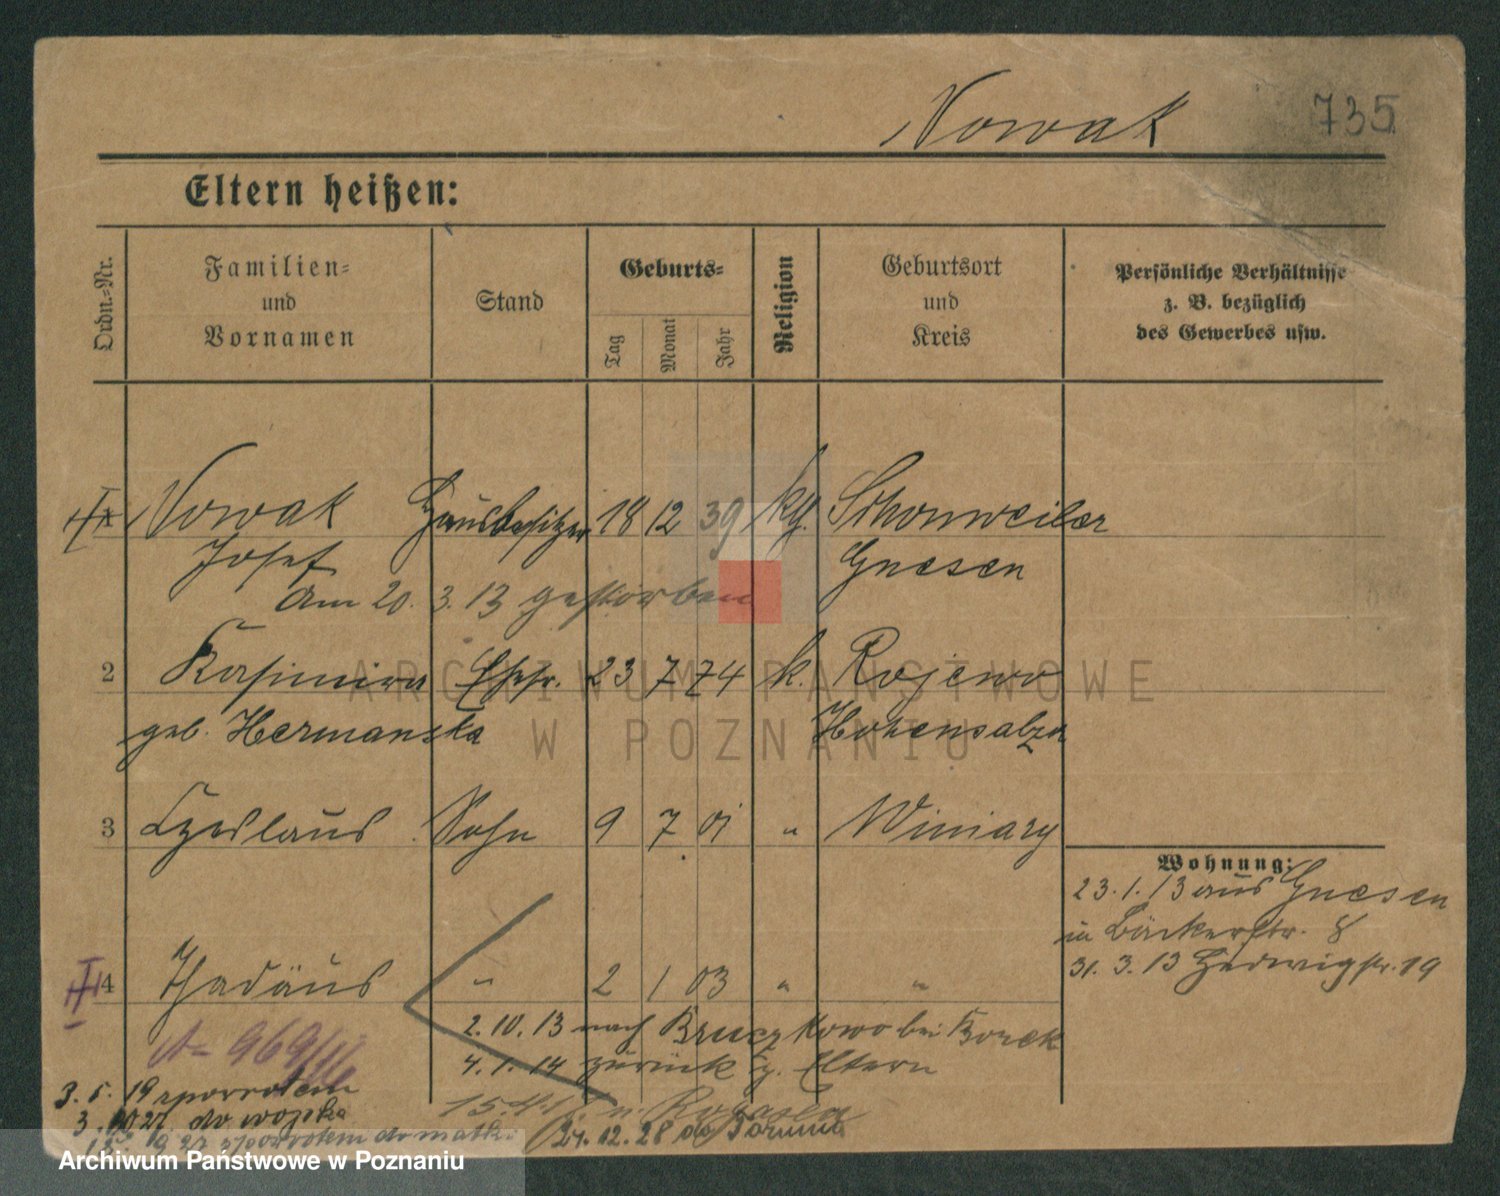 Nowak 735
Eltern heißen:
Ordn.-Nr.
Familien-
und
Vornamen
Stand
Geburts-
Tag
Monat
Jahr
Religion
Geburtsort
und
Kreis
Persönliche Verhältnisse
z. B. bezüglich
des Gewerbes usw.
Nowak Hausbesitzer 18 12 39 kg. Schonweiler
Josef Gnesen
am 20. 3. 13 gestorben
2 Kasimira Ehefr. 23 7 74 k. Rojewo
geb. Hermanska Hohensalza
3 Czeslaus Sohn 9 7 01 " Winiary
Wohnung:
23. 1. 13 aus Gnesen
in Bäckerstr. 8
31. 3. 13 Hedwigstr. 19
4 Thadäus " 2 1 03 " "
2. 10. 13 nach Bruczkowo bei Borek
4. 1. 14 zurück z. Eltern
3. 5. 19 zpowrotem
do wojska
27 zpowrotem do matki
24. 12. 28 do Torunia
ARCHIWUM PAŃSTWOWE
W POZNANIU
Archiwum Państwowe w Poznaniu